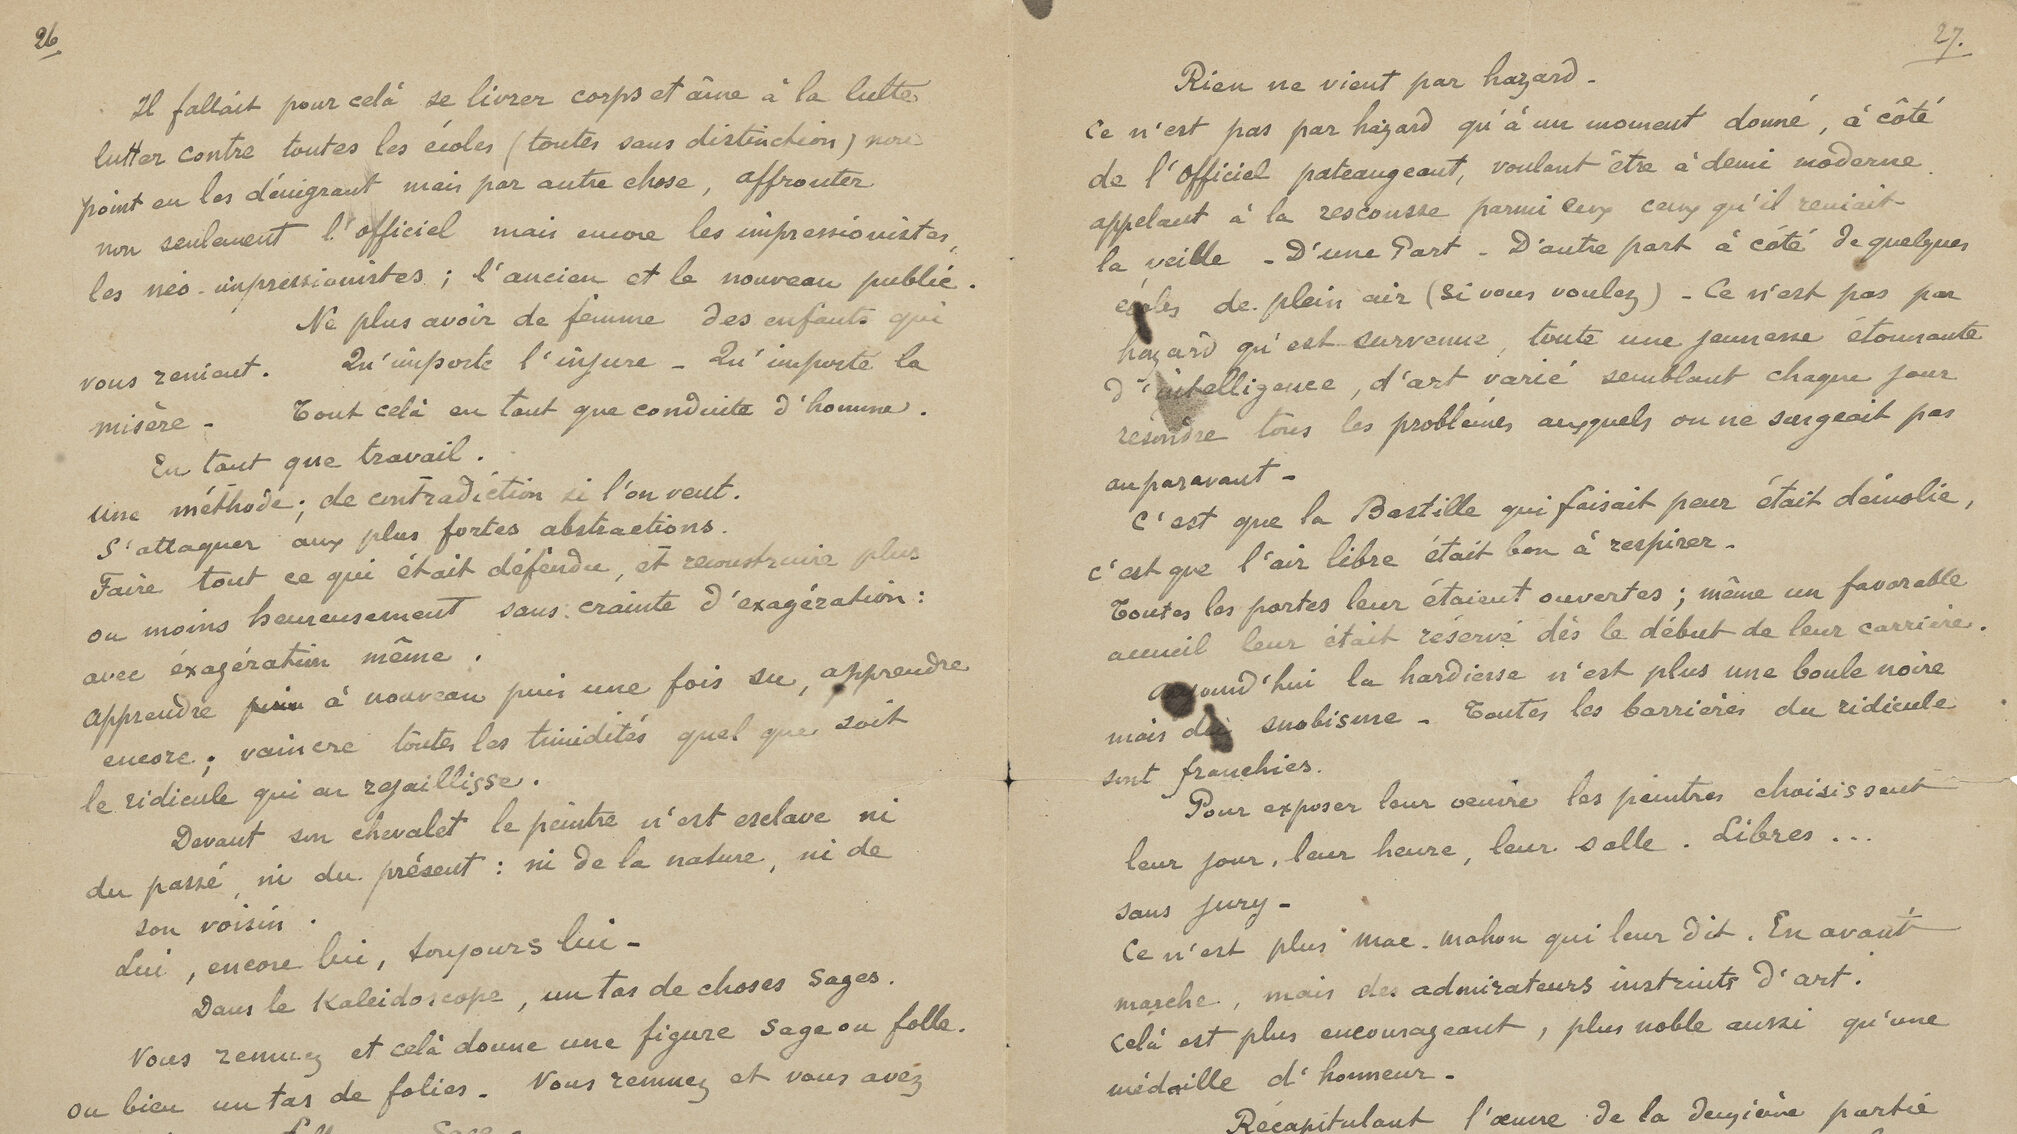 26
Il fallait pour celà se livrer corps et âme à la lutte
lutter contre toutes les écoles (toutes sans distinction) non
point en les dénigrant mais par autre chose, affronter
non seulement l'officiel mais encore les impressionistes,
les néo-impressionistes ; l'ancien et le nouveau public.
Ne plus avoir de femme des enfants qui
vous renient. Qu'importe l'injure - Qu'importe la
misère - Tout celà en tant que conduite d'homme.
En tant que travail.
Une méthode ; de contradiction si l'on veut.
S'attaquer aux plus fortes abstractions.
Faire tout ce qui était défendu, et reconstruire plus
ou moins heureusement sans crainte d'exagération :
avec éxagération même.
Apprendre à nouveau puis une fois su, apprendre
encore ; vaincre toutes les timidités quel que soit
le ridicule qui en rejaillisse.
Devant son chevalet le peintre n'est esclave ni
du passé, ni du présent : ni de la nature, ni de
son voisin.
Lui, encore lui, toujours lui -
Dans le Kaleidoscope, un tas de choses sages.
Vous remuez et celà donne une figure sage ou folle.
Ou bien un tas de folies - Vous remuez et vous avez
27.
Rien ne vient par hazard -
Ce n'est pas par hazard qu'à un moment donné, à côté
de l'officiel pateaugeant, voulant être à demi moderne
appelant à la rescousse parmi ceux ceux qu'il reniait
la veille - D'une Part - D'autre part à côté de quelques
écoles de plein air (si vous voulez) - Ce n'est pas par
hazard qu'est survenue, toute une jeunesse étonnante
d'intelligence, d'art varié semblant chaque jour
résoudre tous les problèmes auxquels on ne songeait pas
auparavant -
C'est que la Bastille qui faisait peur était démolie,
c'est que l'air libre était bon à respirer -
Toutes les portes leur étaient ouvertes ; même un favorable
accueil leur était réservé dès le début de leur carrière.
Aujourd'hui la hardiesse n'est plus une boule noire
mais du snobisme - Toutes les barrières du ridicule
sont franchies.
Pour exposer leur oeuvre les peintres choisissent
leur jour, leur heure, leur salle. Libres ...
sans jury -
Ce n'est plus Mac-Mahon qui leur dit. En avant
marche, mais des admirateurs instruits d'art.
Celà est plus encourageant, plus noble aussi qu'une
médaille d'honneur -
Récapitulant l'œuvre de la deuxième partie